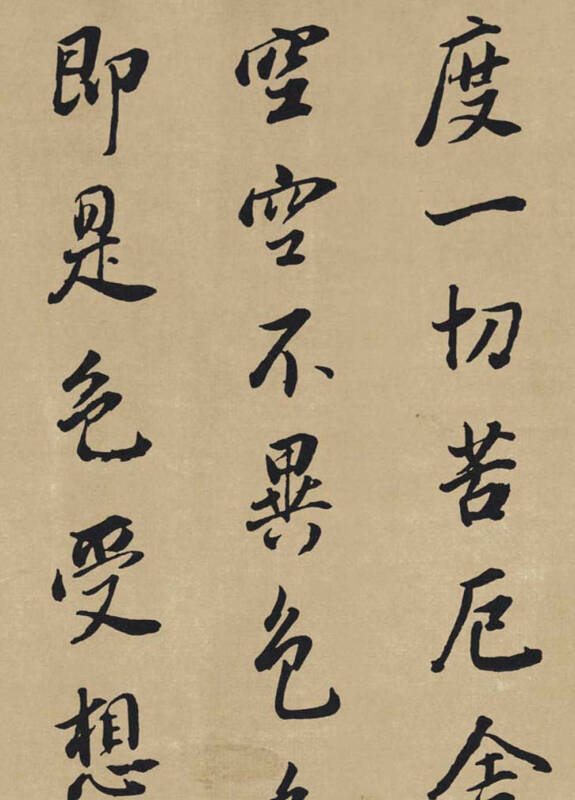 度一切苦厄舍
空空不異色色
即是色受想